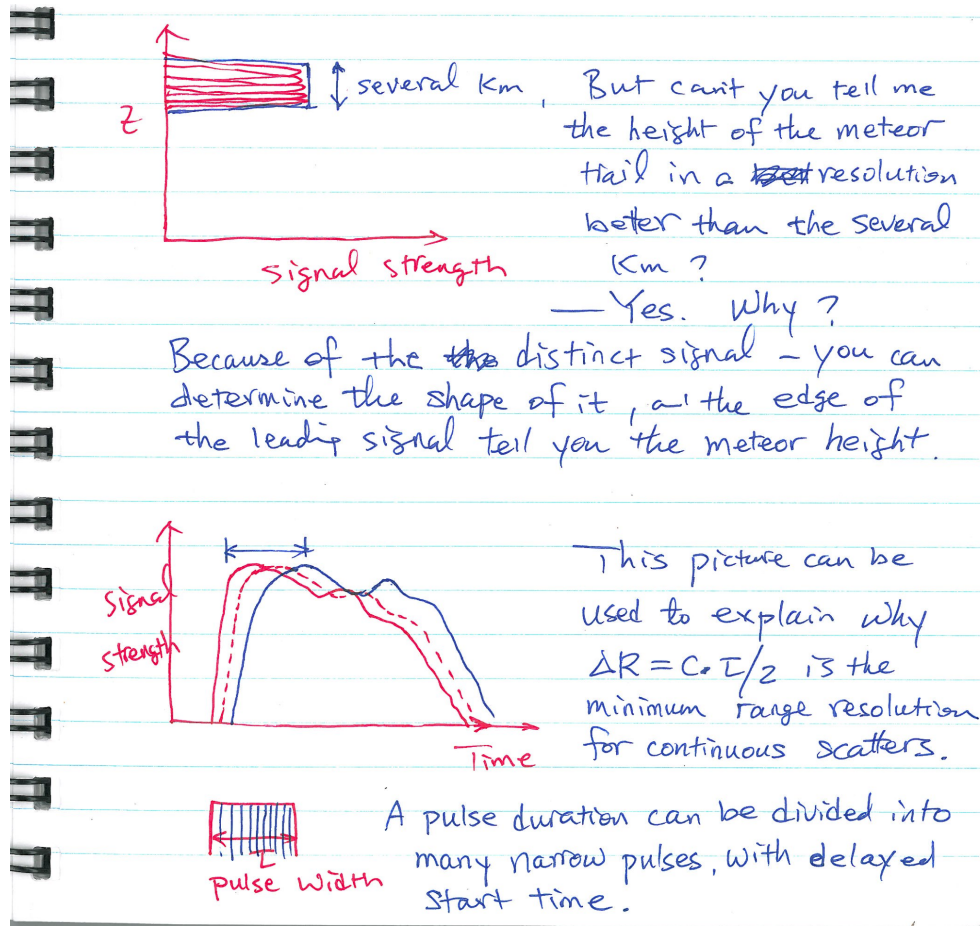 several Km, But can't you tell me
Z
the height of the meteor
trail in a resolution
beter than the several
Km ?
signal strength
— Yes. Why ?
Because of the distinct signal – you can
determine the shape of it, at the edge of
the leadig signal tell you the meteor height.
Signal
strength
This picture can be
used to explain why
ΔR = C·τ/2 is the
minimum range resolution
for continuous scatters.
Time
A pulse duration can be divided into
τ
many narrow pulses, with delayed
pulse width
start time.